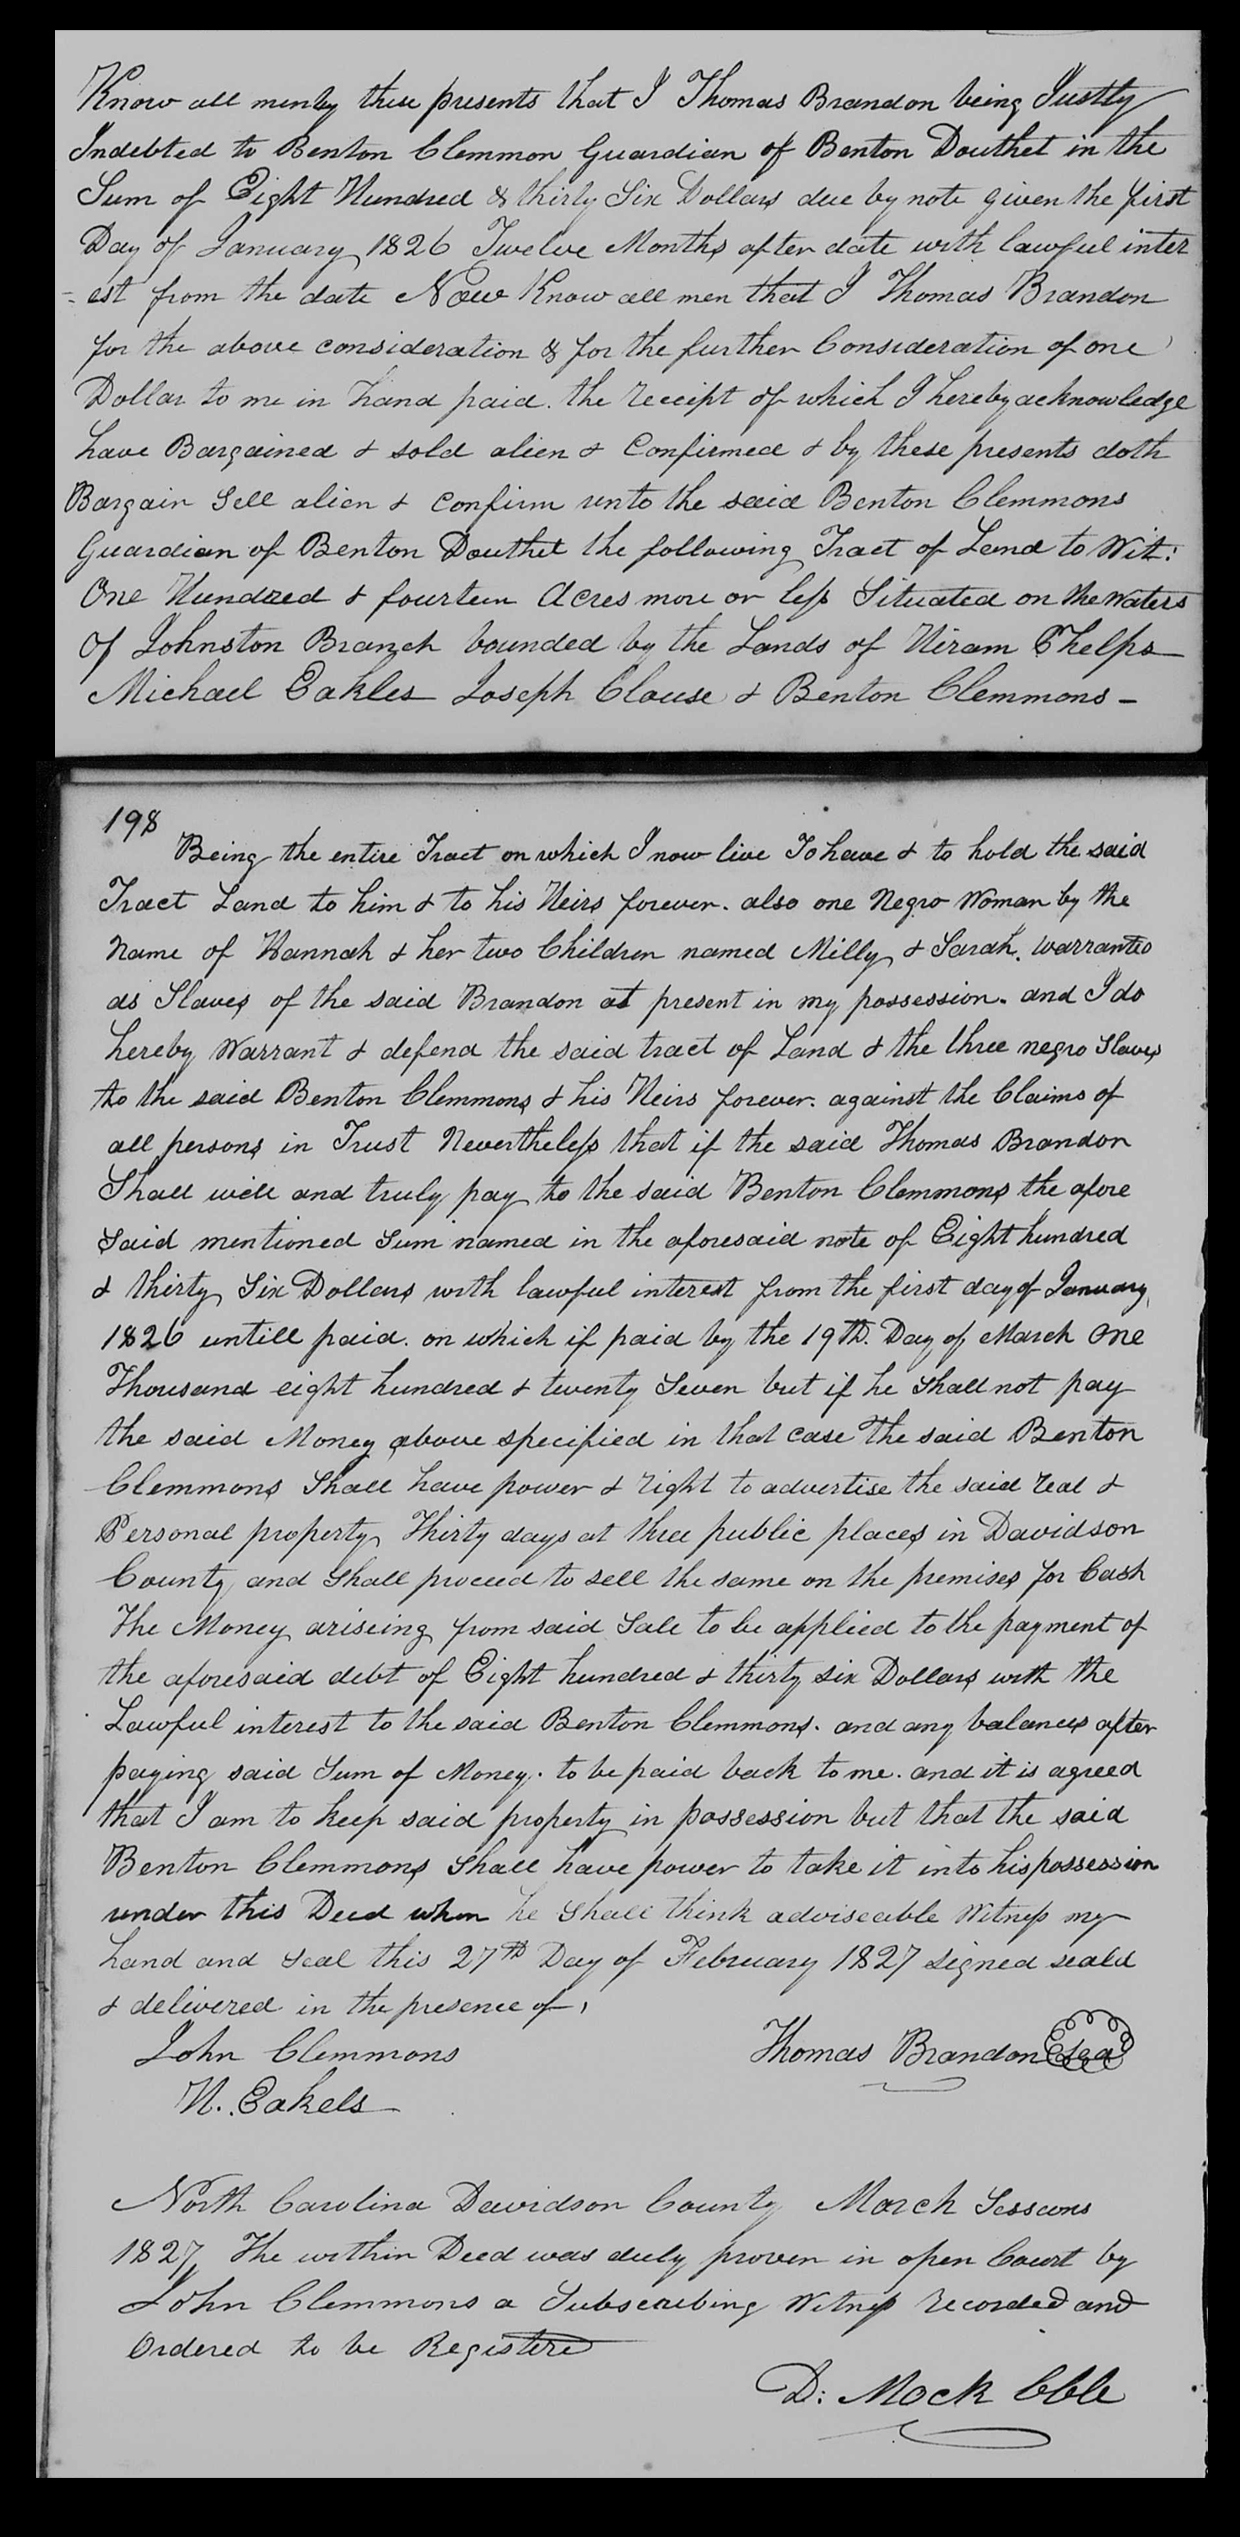 Know all men by these presents that I Thomas Brandon being Justly
Indebted to Benton Clemmon Guardian of Benton Douthet in the
Sum of Eight Hundred & thirty Six Dollars due by note given the first
Day of January 1826 Twelve Months after date with lawful inter
= est from the date Now Know all men that I Thomas Brandon
for the above consideration & for the further Consideration of one
Dollar to me in hand paid. the receipt of which I hereby acknowledge
have Bargained & sold alien & Confirmed & by these presents doth
Bargain Sell alien & confirm unto the said Benton Clemmons
Guardian of Benton Douthet the following Tract of Land to Wit:
One Hundred & fourteen Acres more or less Situated on the Waters
Of Johnston Branch bounded by the Lands of Hiram Phelps
Michael Eakles Joseph Clouse & Benton Clemmons -
198
Being the entire Tract on which I now live To have & to hold the said
Tract Land to him & to his Heirs forever. also one Negro Woman by the
Name of Hannah & her two Children named Milly & Sarah. warranted
as Slaves of the said Brandon at present in my possession. and I do
hereby Warrant & defend the said tract of Land & the three negro Slaves
to the said Benton Clemmons & his Heirs forever. against the Claims of
all persons in Trust Nevertheless that if the said Thomas Brandon
Shall well and truly pay to the said Benton Clemmons the afore
Said mentioned Sum named in the aforesaid note of Eight hundred
& thirty Six Dollars with lawful interest from the first day of January
1826 untill paid. on which if paid by the 19th. Day of March One
Thousand eight hundred & twenty Seven but if he Shall not pay
the said Money above specified in that case the said Benton
Clemmons Shall have power & right to advertise the said real &
Personal property Thirty days at three public places in Davidson
County and Shall proceed to sell the same on the premises for Cash
The Money ariseing from said Sale to be applied to the payment of
the aforesaid debt of Eight hundred & thirty six Dollars with the
Lawful interest to the said Benton Clemmons. and any balances after
paying said Sum of Money. to be paid back to me. and it is agreed
that I am to keep said property in possession but that the said
Benton Clemmons Shall have power to take it into his possession
under this Deed when he Shall think adviseable Witness my
hand and Seal this 27th Day of February 1827 signed seald
& delivered in the presence of,
John Clemmons Thomas Brandon Seal
H. Eakels
North Carolina Davidson County March Sessions
1827 The within Deed was duly proven in open Court by
John Clemmons a Subscribing Witness recorded and
Ordered to be Registere
D: Mock CClk